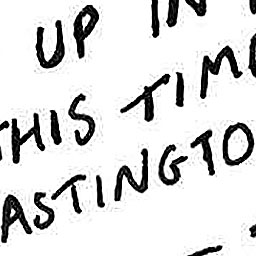 UP IN
THIS TIM
ASTINGTO